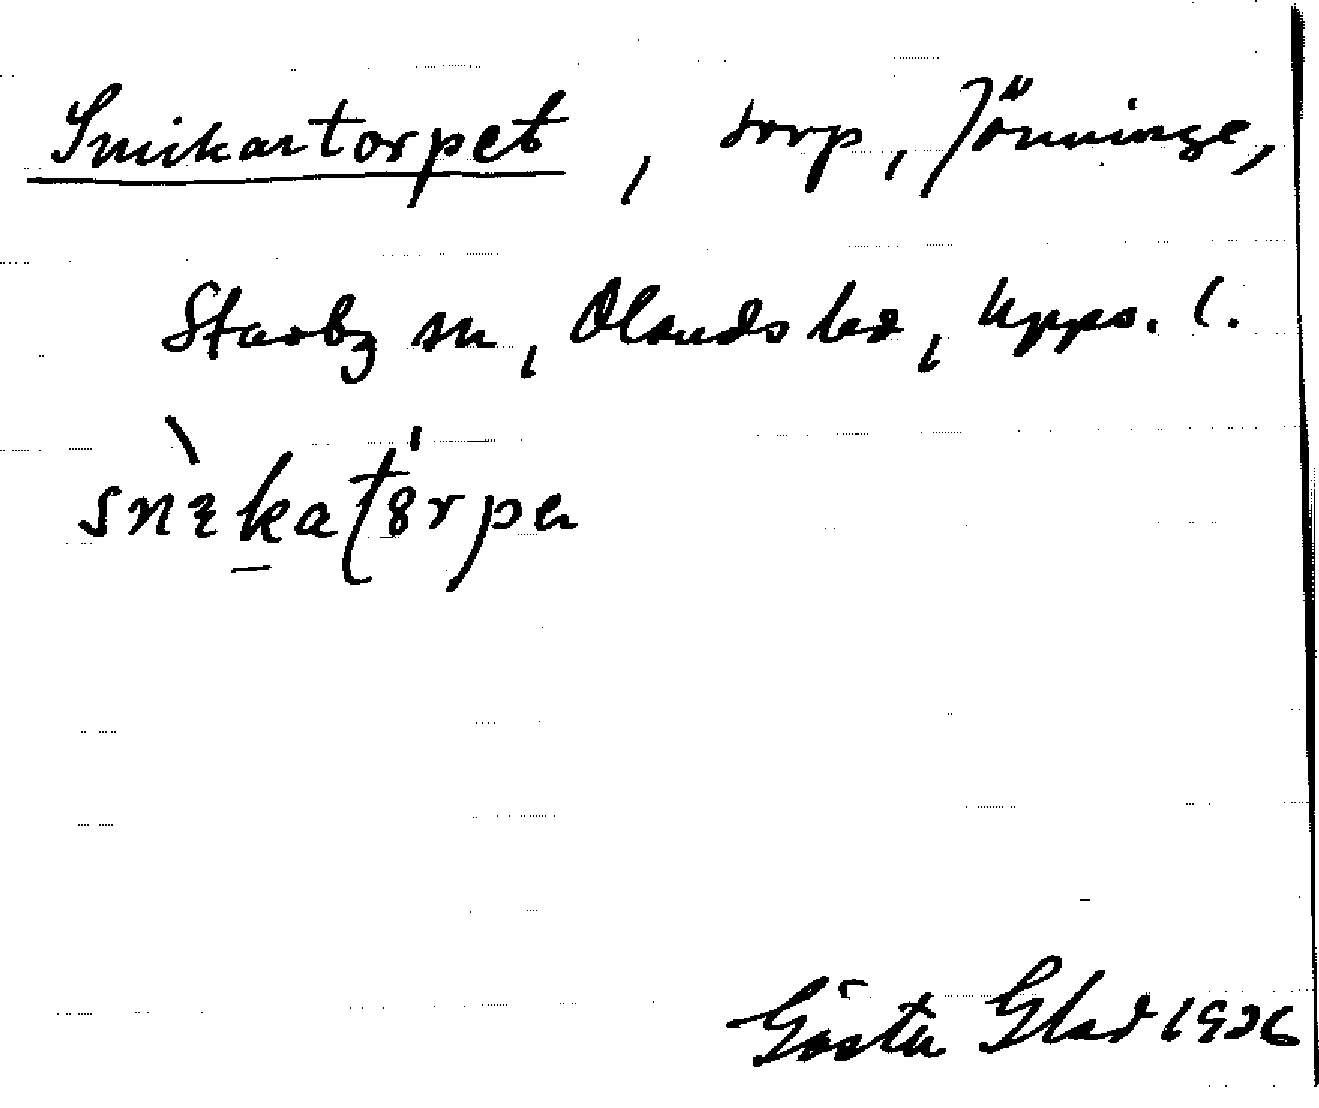 Snikartorpet, torp, Jönninge,
Stavby sn, Olands hd, Upps. l.
Gösta Glad 1926